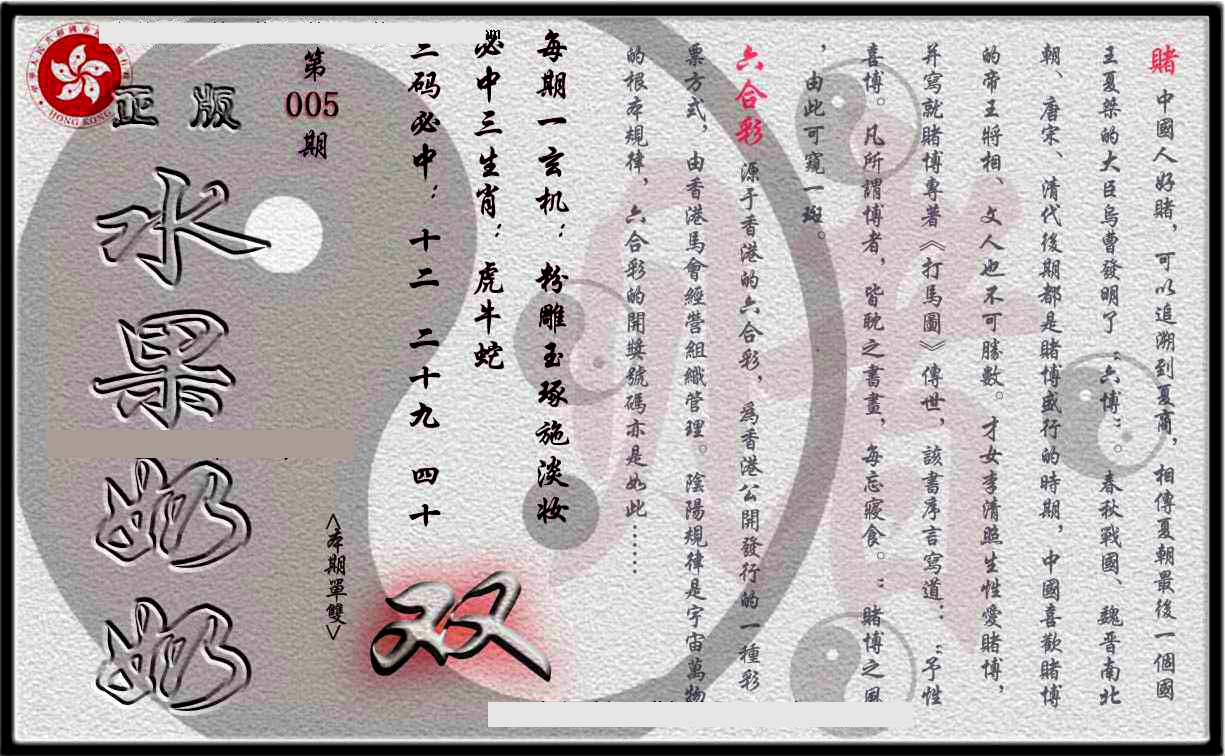 賭 中國人好賭，可以追溯到夏商，相傳夏朝最後一個國
王夏桀的大臣烏曹發明了“六博”。春秋戰國、魏晋南北
朝、唐宋、清代後期都是賭博盛行的時期，中國喜歡賭博
的帝王將相、文人也不可勝數。才女李清照生性愛賭博，
并寫就賭博專著《打馬圖》傳世，該書序言寫道：“予性
喜博。凡所謂博者，皆耽之書畫，每忘寢食。”賭博之風
，由此可窺一斑。
六合彩 源于香港的六合彩，為香港公開發行的一種彩
票方式，由香港馬會經營組織管理。陰陽規律是宇宙萬物
的根本規律，六合彩的開獎號碼亦是如此……
每期一玄机：粉雕玉琢施淡妆
必中三生肖：虎牛蛇
二码必中：十二 二十九 四十
第
005
期
正版
水果奶奶
<本期單雙>
双
HONG KONG